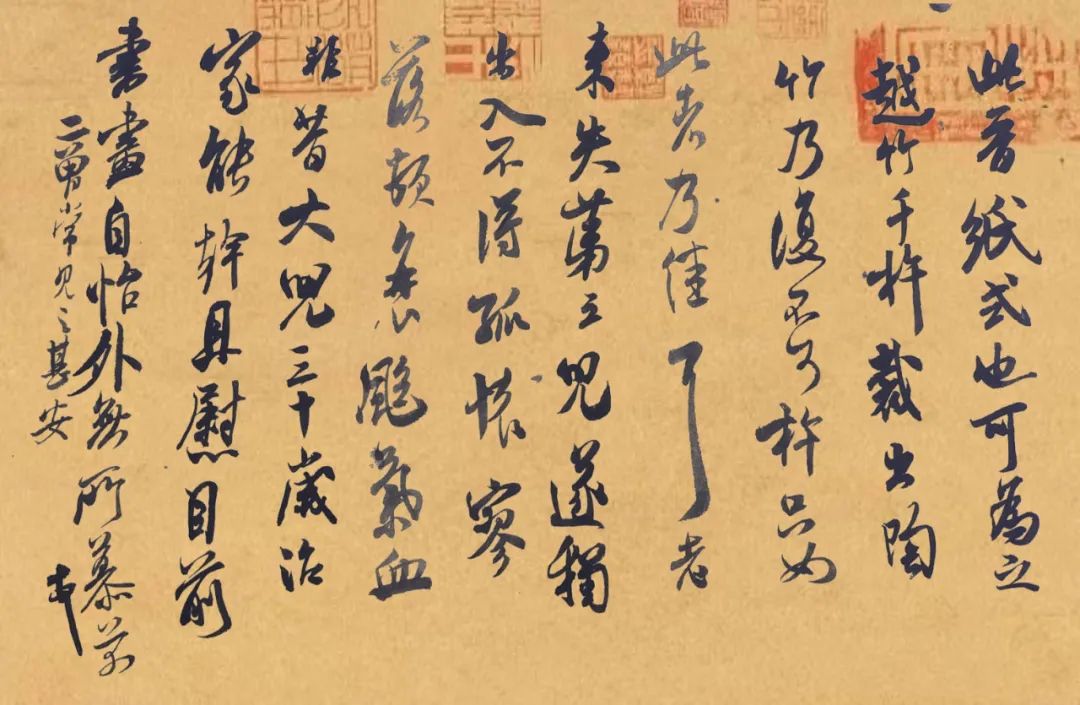 此晉紙式也可為之
越竹千杵裁出陶
竹乃復不可杵只如
此者乃佳耳老
來失第三兒遂獨
出入不得孤懷寥
落頓衰颯氣血
非昔大兒三十歲治
家能幹且慰目前
書畫自怡外無所慕
二曾常見之甚安